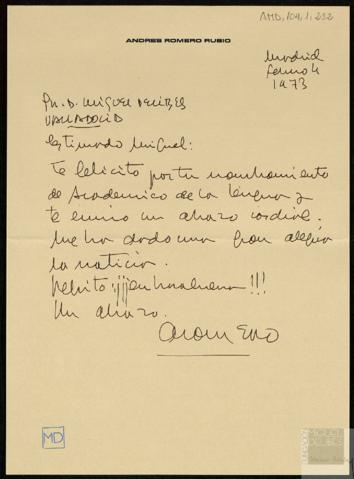 AMD, 104, 1, 232
ANDRES ROMERO RUBIO
Madrid
febrero 4
1973
Sr. D. Miguel DELIBES
VALLADOLID
Estimado Miguel:
Te felicito por tu nombramiento
de Académico de la Lengua y
te envio un abrazo cordial.
Me ha dado una gran alegria
la noticia.
Repito ¡¡¡enhorabuena!!!
Un abrazo.
MD